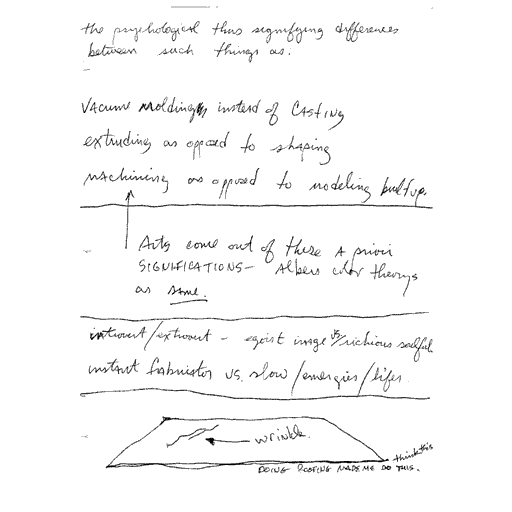 the psychological thus signifying differences
between such things as.
Vacume molding instead of Casting
extruding as opposed to shaping
machining as opposed to modeling built up.
Arts come out of these A priori
SIGNIFICATIONS - Albers color theorys
as same.
introvert/extrovert - egoist image vs soulful
instant fabricator vs. slow/energies/lifes
wrinkle.
think this
DOING ROOFING MADE ME DO THIS.